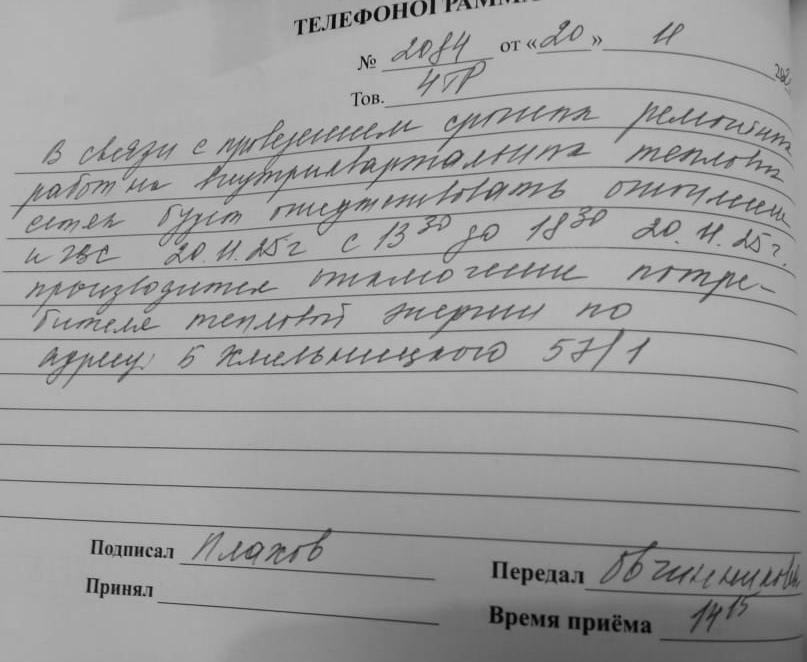 ТЕЛЕФОНОГРАММА
№ 2084 от «20» 11 202
Тов. ЧТР
В связи с проведением срочных ремонтных
работ на внутриквартальных тепловых
сетях будет отсутствовать отопление
и ГВС 20.11.25г с 13 30 до 18 30 20.11.25г.
производится отключение потре-
бителя тепловой энергии по
адресу: Б Хмельницкого 57/1
Подписал Плахов
Передал Овчинникова
Принял
Время приёма 14 15